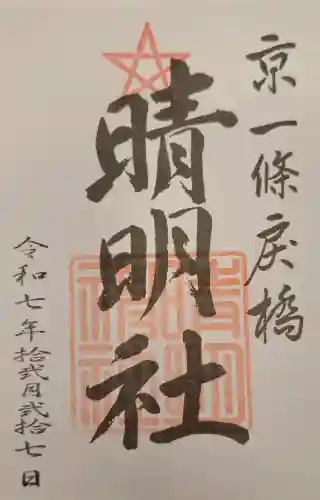 京一條戻橋
晴明社
令和七年拾弐月弐拾七日
晴明神社